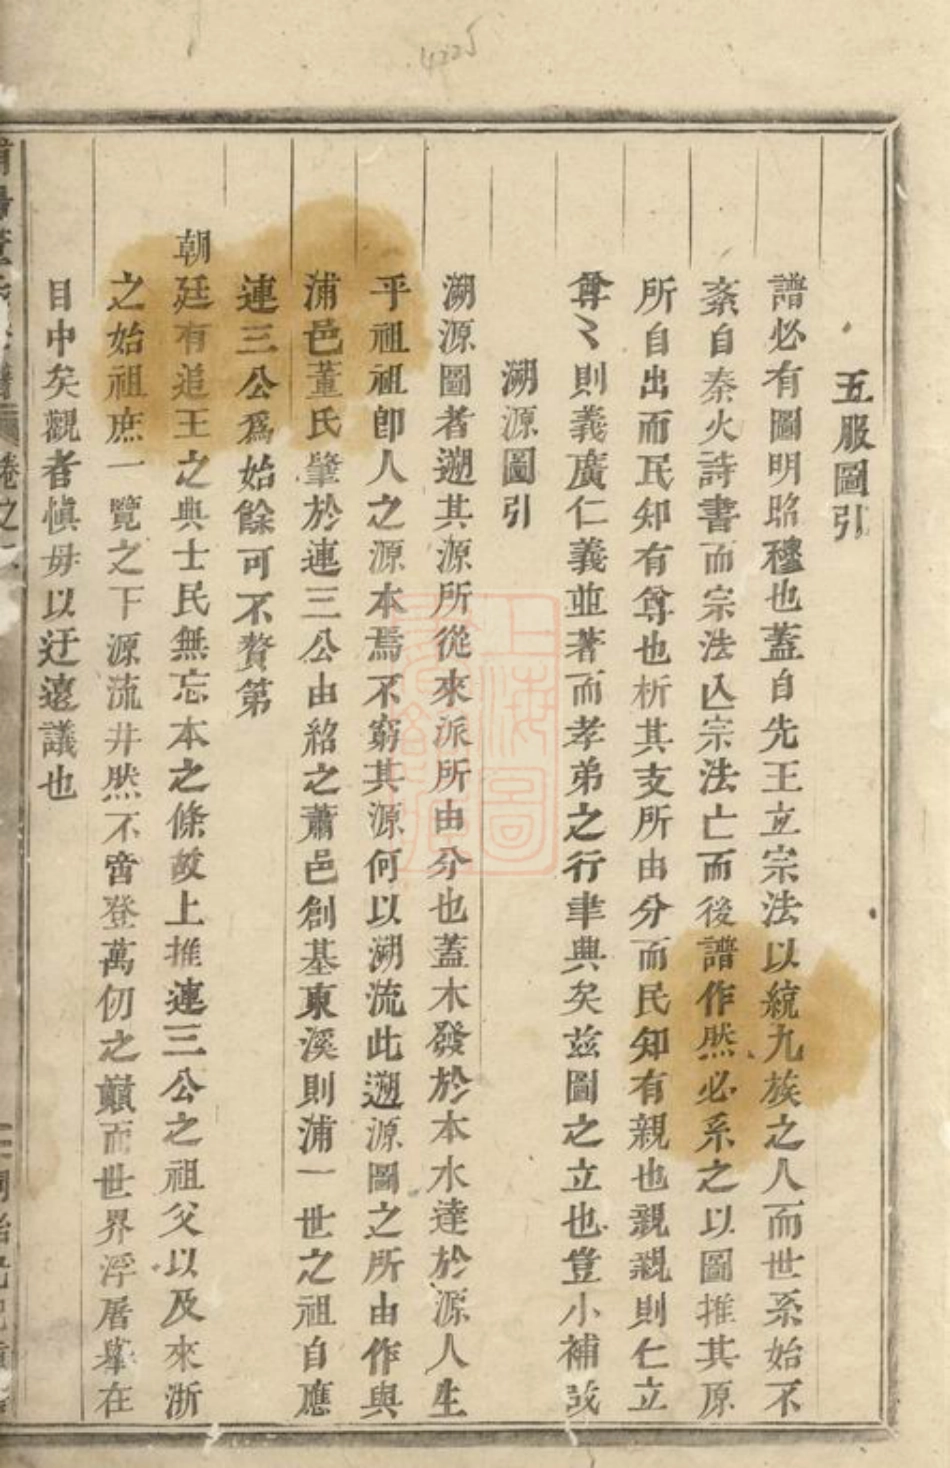 4225
五服圖引
譜必有圖明昭穆也蓋自先王立宗法以統九族之人而世系始不
紊自秦火詩書而宗法亾宗法亡而後譜作然必系之以圖推其原
所自出而民知有尊也析其支所由分而民知有親也親親則仁立
尊〻則義廣仁義並著而孝弟之行聿典矣兹圖之立也豈小補哉
溯源圖引
溯源圖者遡其源所從來派所由分也蓋木發於本水達於源人生
乎祖祖卽人之源本焉不窮其源何以溯流此遡源圖之所由作與
浦邑董氏肇於連三公由紹之蕭邑創基東溪則浦一世之祖自應
連三公爲始餘可不贅第
朝廷有追王之典士民無忘本之條故上推連三公之祖父以及來浙
之始祖庶一覽之下源流井然不啻登萬仞之巔而世界浮屠舉在
目中矣觀者慎毋以迂遠議也
卷之
上海圖書館藏